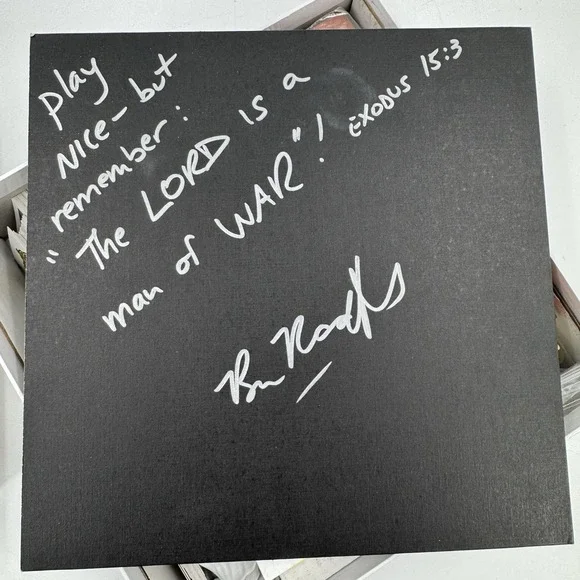 play
NICE - but
remember:
"The LORD is a
man of WAR"! EXODUS 15:3